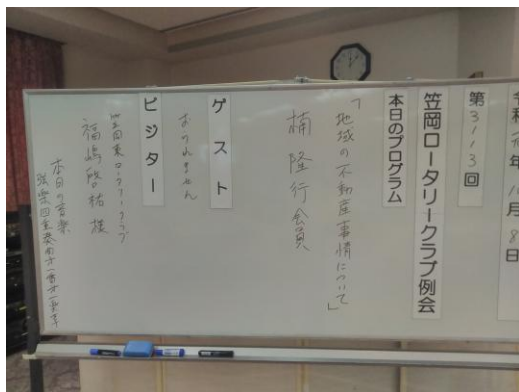 令和元年10月8日
第3113回
笠岡ロータリークラブ例会
本日のプログラム
「地域の不動産事情について」
楠 隆行会員
ゲスト
おられません
ビジター
笠岡東ロータリークラブ
福嶋啓祐 様
本日の音楽
弦楽四重奏曲第一番第一楽章